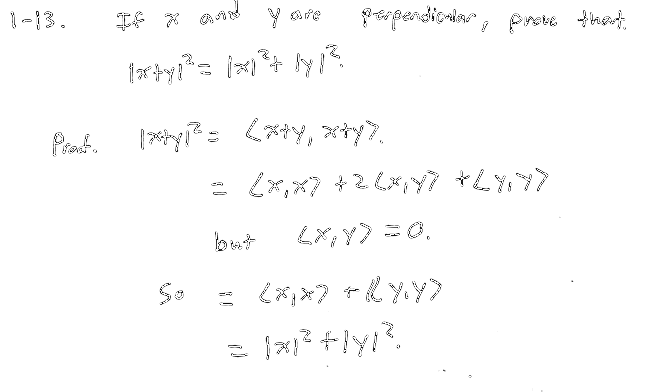 1-13. If x and y are perpendicular, prove that
|x+y|² = |x|² + |y|².
Proof. |x+y|² = ⟨x+y, x+y⟩.
= ⟨x,x⟩ + 2⟨x,y⟩ + ⟨y,y⟩
but ⟨x,y⟩ = 0.
So = ⟨x,x⟩ + ⟨y,y⟩
= |x|² + |y|².